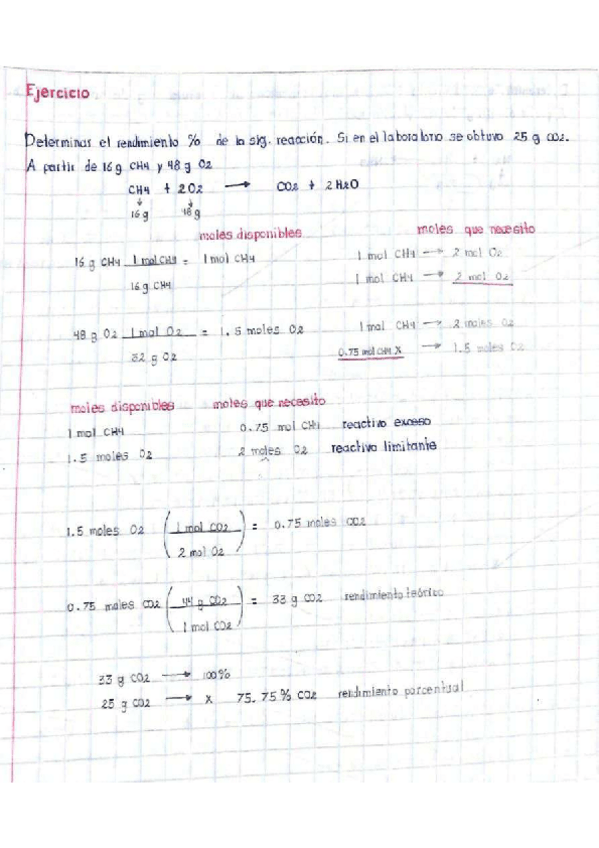 Ejercicio
Determinar el rendimiento % de la sig. reacción. Si en el laboratorio se obtuvo 25 g CO2.
A partir de 16 g CH4 y 48 g O2
CH4 + 2O2 → CO2 + 2H2O
↓ ↓
16g 48g
moles disponibles moles que necesito
16 g CH4 1 mol CH4 = 1 mol CH4
16 g CH4
1 mol CH4 → 2 mol O2
1 mol CH4 → 2 mol O2
48 g O2 1 mol O2 = 1.5 moles O2
32 g O2
1 mol CH4 → 2 moles O2
0.75 mol CH4 X → 1.5 moles O2
moles disponibles moles que necesito
1 mol CH4 0.75 mol CH4 reactivo exceso
1.5 moles O2 2 moles O2 reactivo limitante
1.5 moles O2 ( 1 mol CO2 ) = 0.75 moles CO2
2 mol O2
0.75 moles CO2 ( 44 g CO2 ) = 33 g CO2 rendimiento teórico
1 mol CO2
33 g CO2 → 100%
25 g CO2 → X 75.75 % CO2 rendimiento porcentual